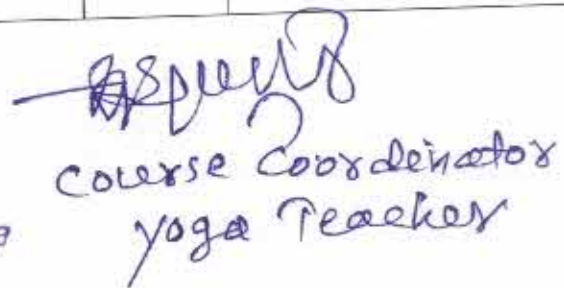 Course Coordinator
Yoga Teacher